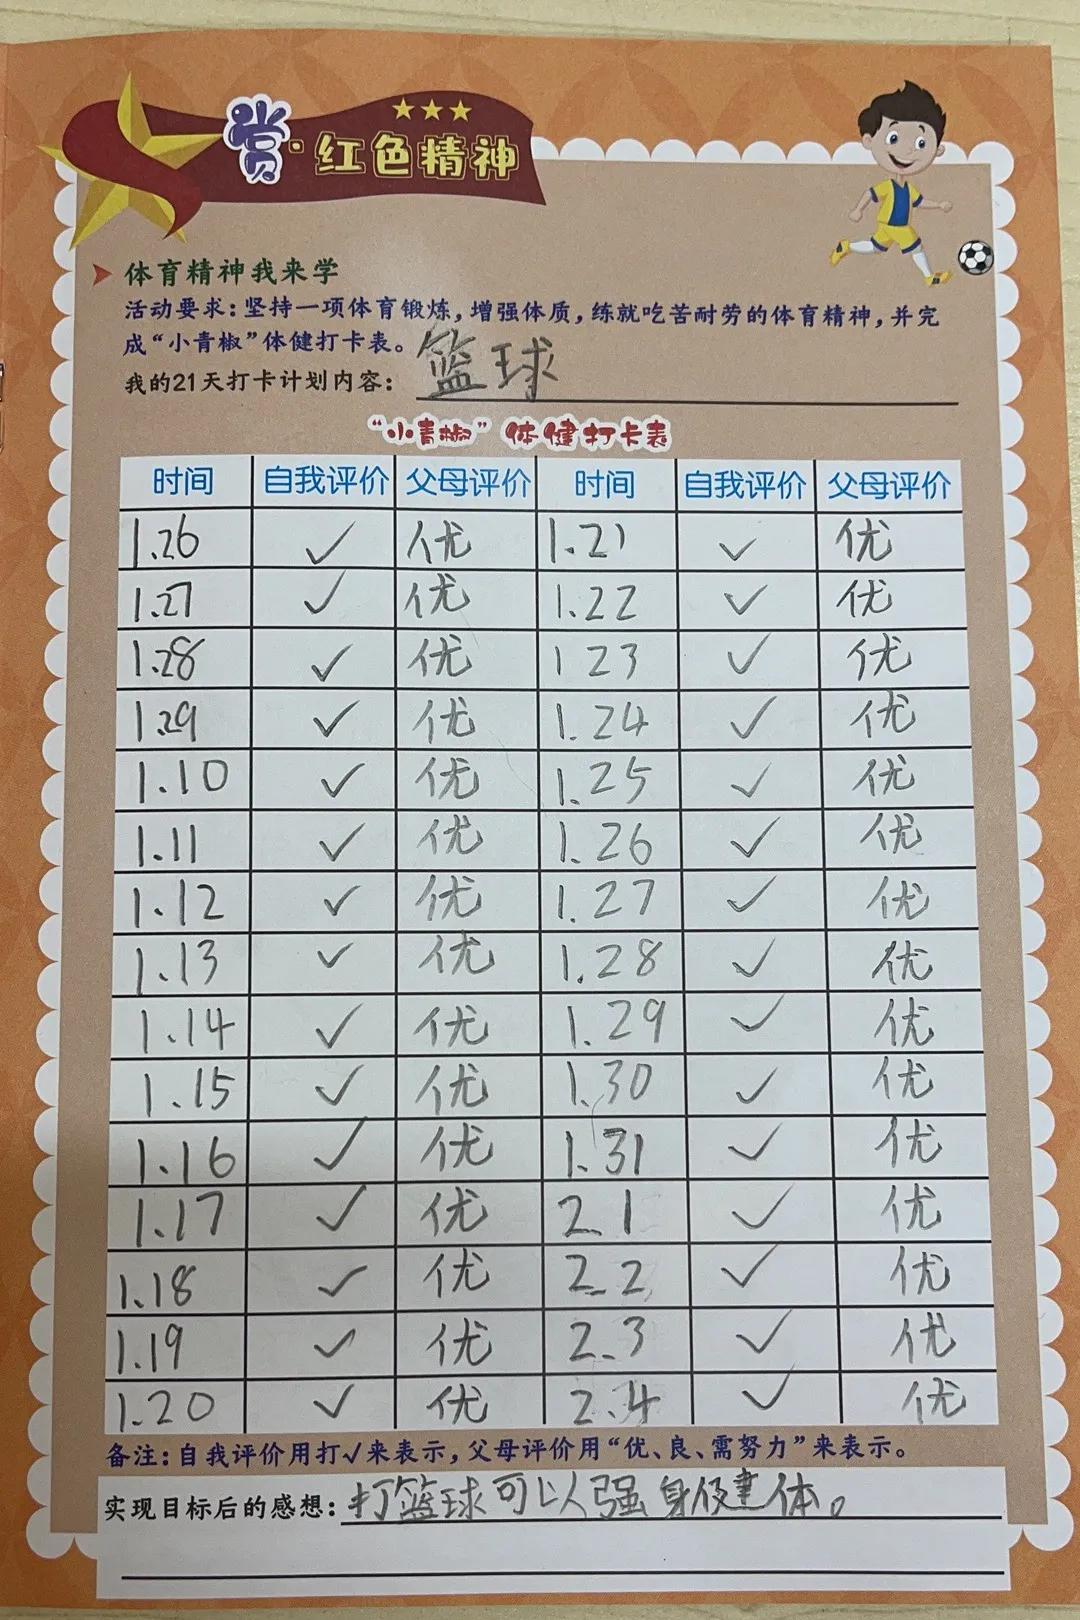 赏·红色精神
体育精神我来学
活动要求：坚持一项体育锻炼，增强体质，练就吃苦耐劳的体育精神，并完
成“小青椒”体健打卡表。
我的21天打卡计划内容：篮球
“小青椒”体健打卡表
时间 自我评价 父母评价 时间 自我评价 父母评价
1.26 ✓ 优 1.21 ✓ 优
1.27 ✓ 优 1.22 ✓ 优
1.28 ✓ 优 1 23 ✓ 优
1.29 ✓ 优 1.24 ✓ 优
1.10 ✓ 优 1.25 ✓ 优
1.11 ✓ 优 1.26 ✓ 优
1.12 ✓ 优 1.27 ✓ 优
1.13 ✓ 优 1.28 ✓ 优
1.14 ✓ 优 1.29 ✓ 优
1.15 ✓ 优 1.30 ✓ 优
1.16 ✓ 优 1.31 ✓ 优
1.17 ✓ 优 2.1 ✓ 优
1.18 ✓ 优 2.2 ✓ 优
1.19 ✓ 优 2.3 ✓ 优
1.20 ✓ 优 2.4 ✓ 优
备注：自我评价用打√来表示，父母评价用“优、良、需努力”来表示。
实现目标后的感想：打篮球可以强身健体。